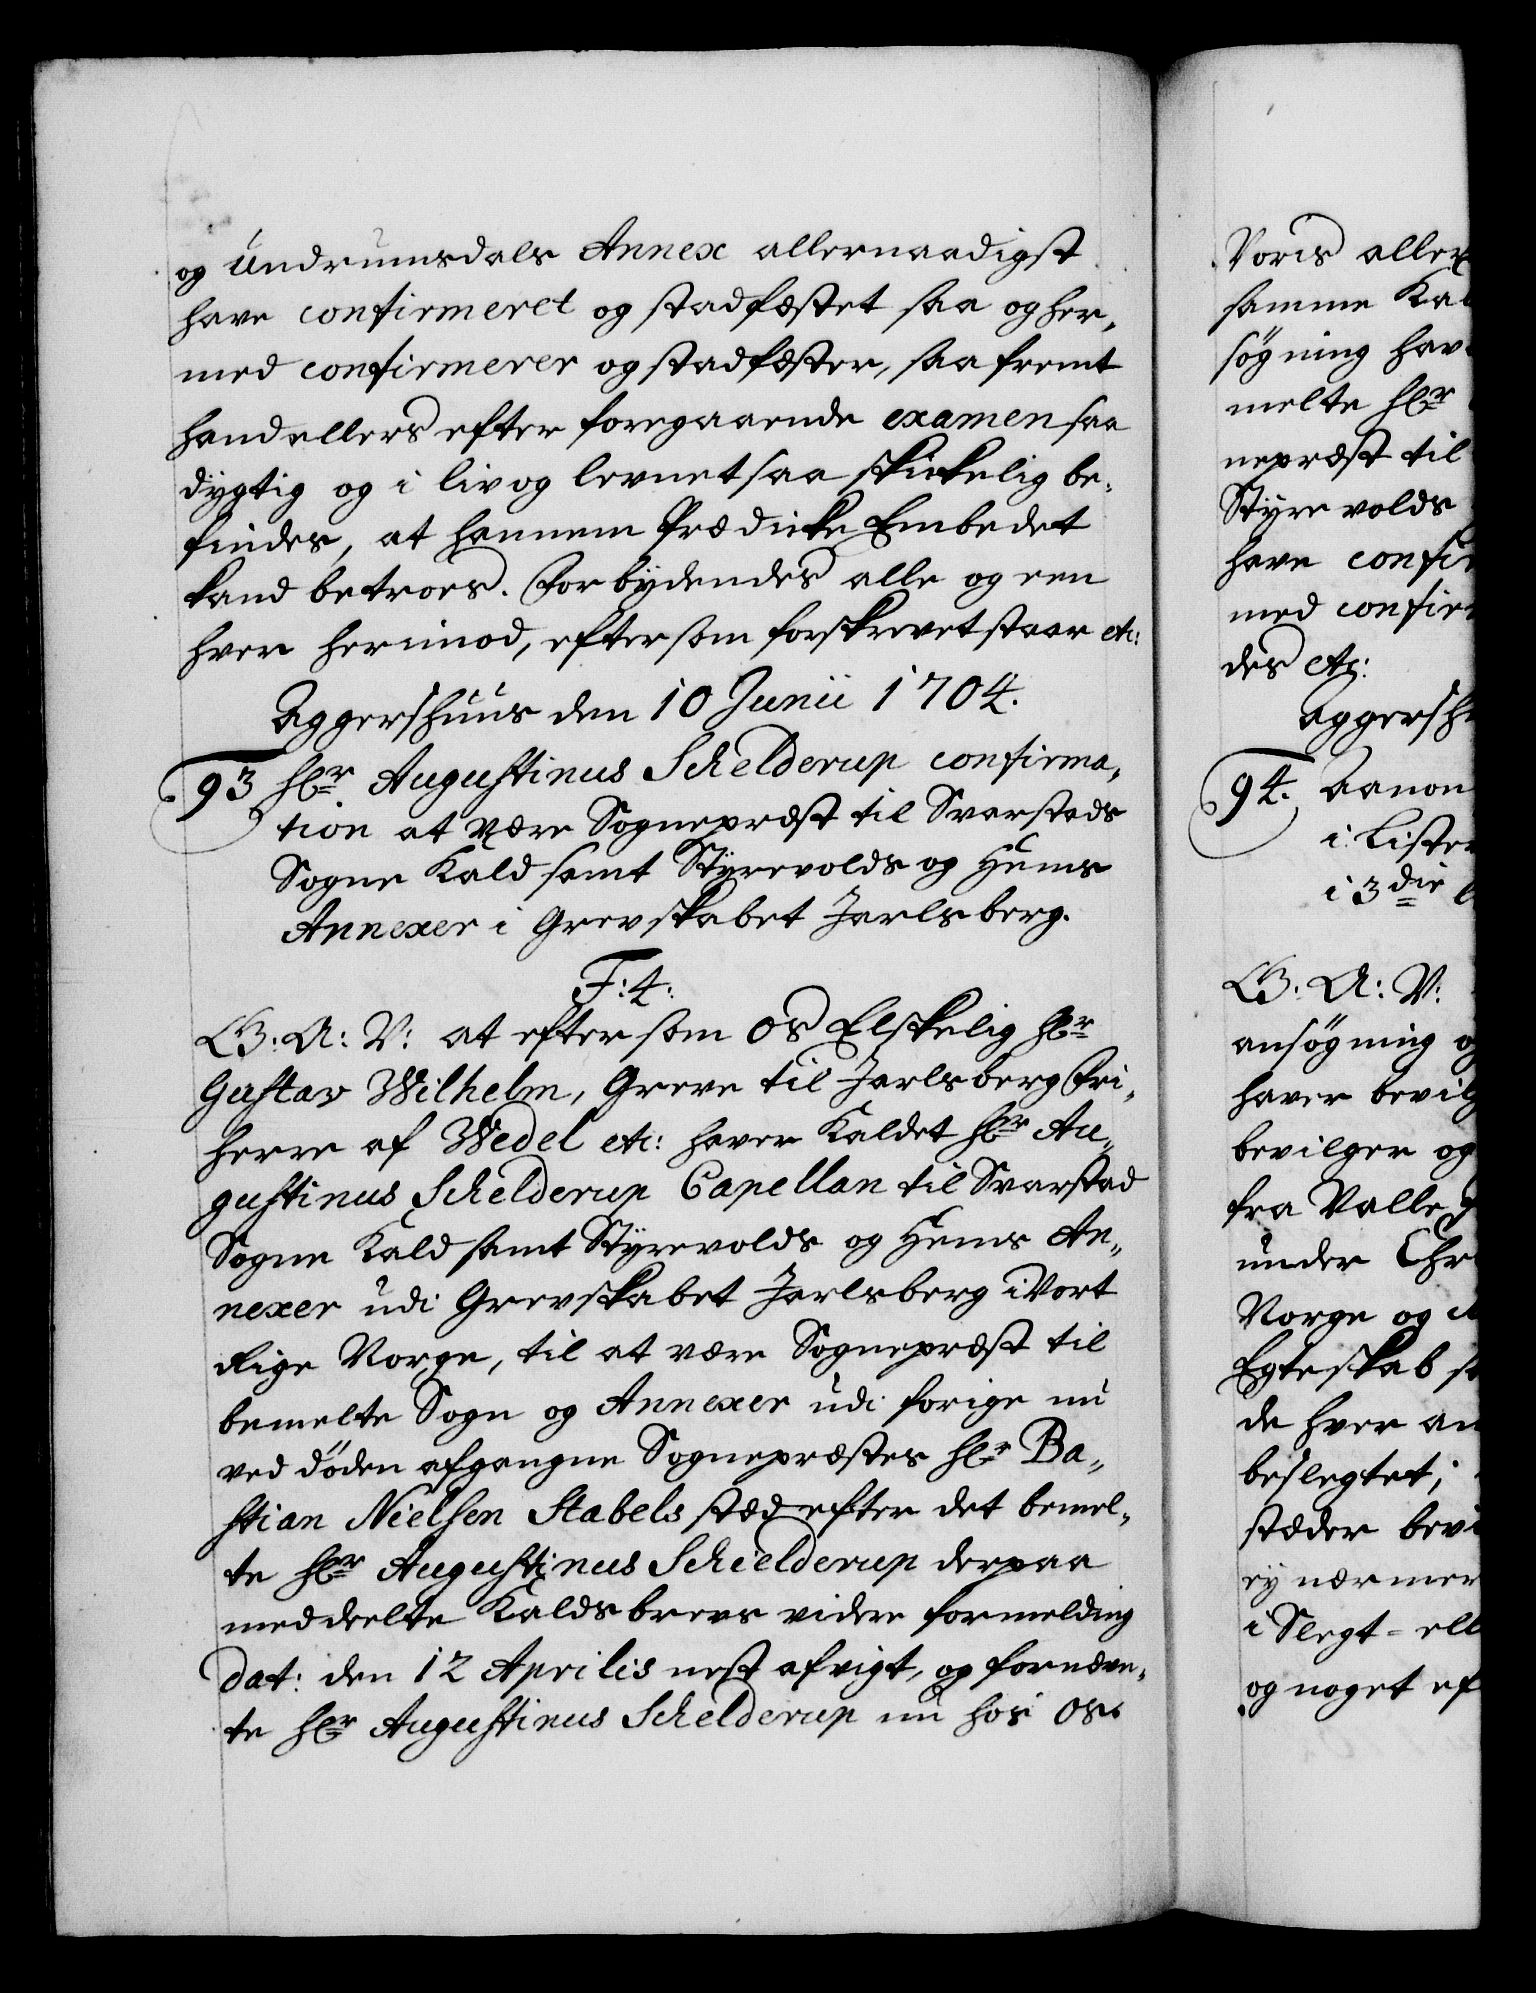 og Undrumsdals Annex allernaadigst
have confirmeret og stadfæstet saa og her„
med confirmerer og stadfæster, saa fremt
hand ellers efter foregaaende examen saa
dygtig og i liv og levnet saa skickelig be„
findes, at hannem Prædicke Embedet
kand betroes. Forbydendes alle og een
hver herimod, eftersom forskrevet staar etc:
Aggershuus den 10 Junii 1704.
93 Hr Augustinus Schelderup confirma„
tion at være Sognepræst til Svarstads
Sogne Kald samt Styrvolds og Hems
Annexer i Grevskabet Jarlsberg.
F: 4:
G: A: V: at eftersom os Elskelig Hr
Gustav Wilhelm, Greve til Jarlsberg Fri„
herre af Wedel etc: haver Kaldet Hr Au„
gustinus Schelderup Capellan til Svarstad
Sogne Kald samt Styrevolds og Hems An„
nexer udi Grevskabet Jarlsberg i Vort
Rige Norge, til at være Sognepræst til
bemelte Sogn og Annexer udi forige nu
ved døden afgangne Sognepræstes Hr Ba„
stian Nielsen Stabels stæd efter det bemel„
te Hr Augustinus Schielderup derpaa
meddeelte Kaldsbrevs videre formelding
dat: den 12 Aprilis nest afvigt, og fornævn„
te Hr Augustinus Schelderup nu hos os
Voris aller
samme Kal
søgning hav
melte Hr
nepræst til
Styrevolds
have confir
med confir
des etc:
Aggershu
94. Aanon
i Lister
i 3die
G: A: V:
ansøgning og
haver bevilg
bevilger og
fra Valle
under Chr
Norge og
Egteskab
de hver an
beslegtet;
stæder bevi
ey nærmer
i Slegt- ell
og noget ef